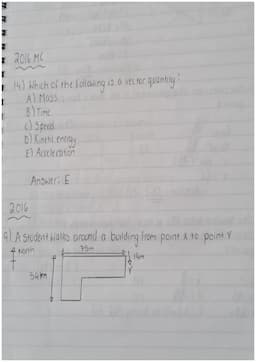 2016 MC
14) Which of the following is a vector quantity?
A) Mass
B) Time
C) Speed
D) Kinetic energy
E) Acceleration
Answer: E
2016
9) A student walks around a building from point X to point Y
North
75m
Y